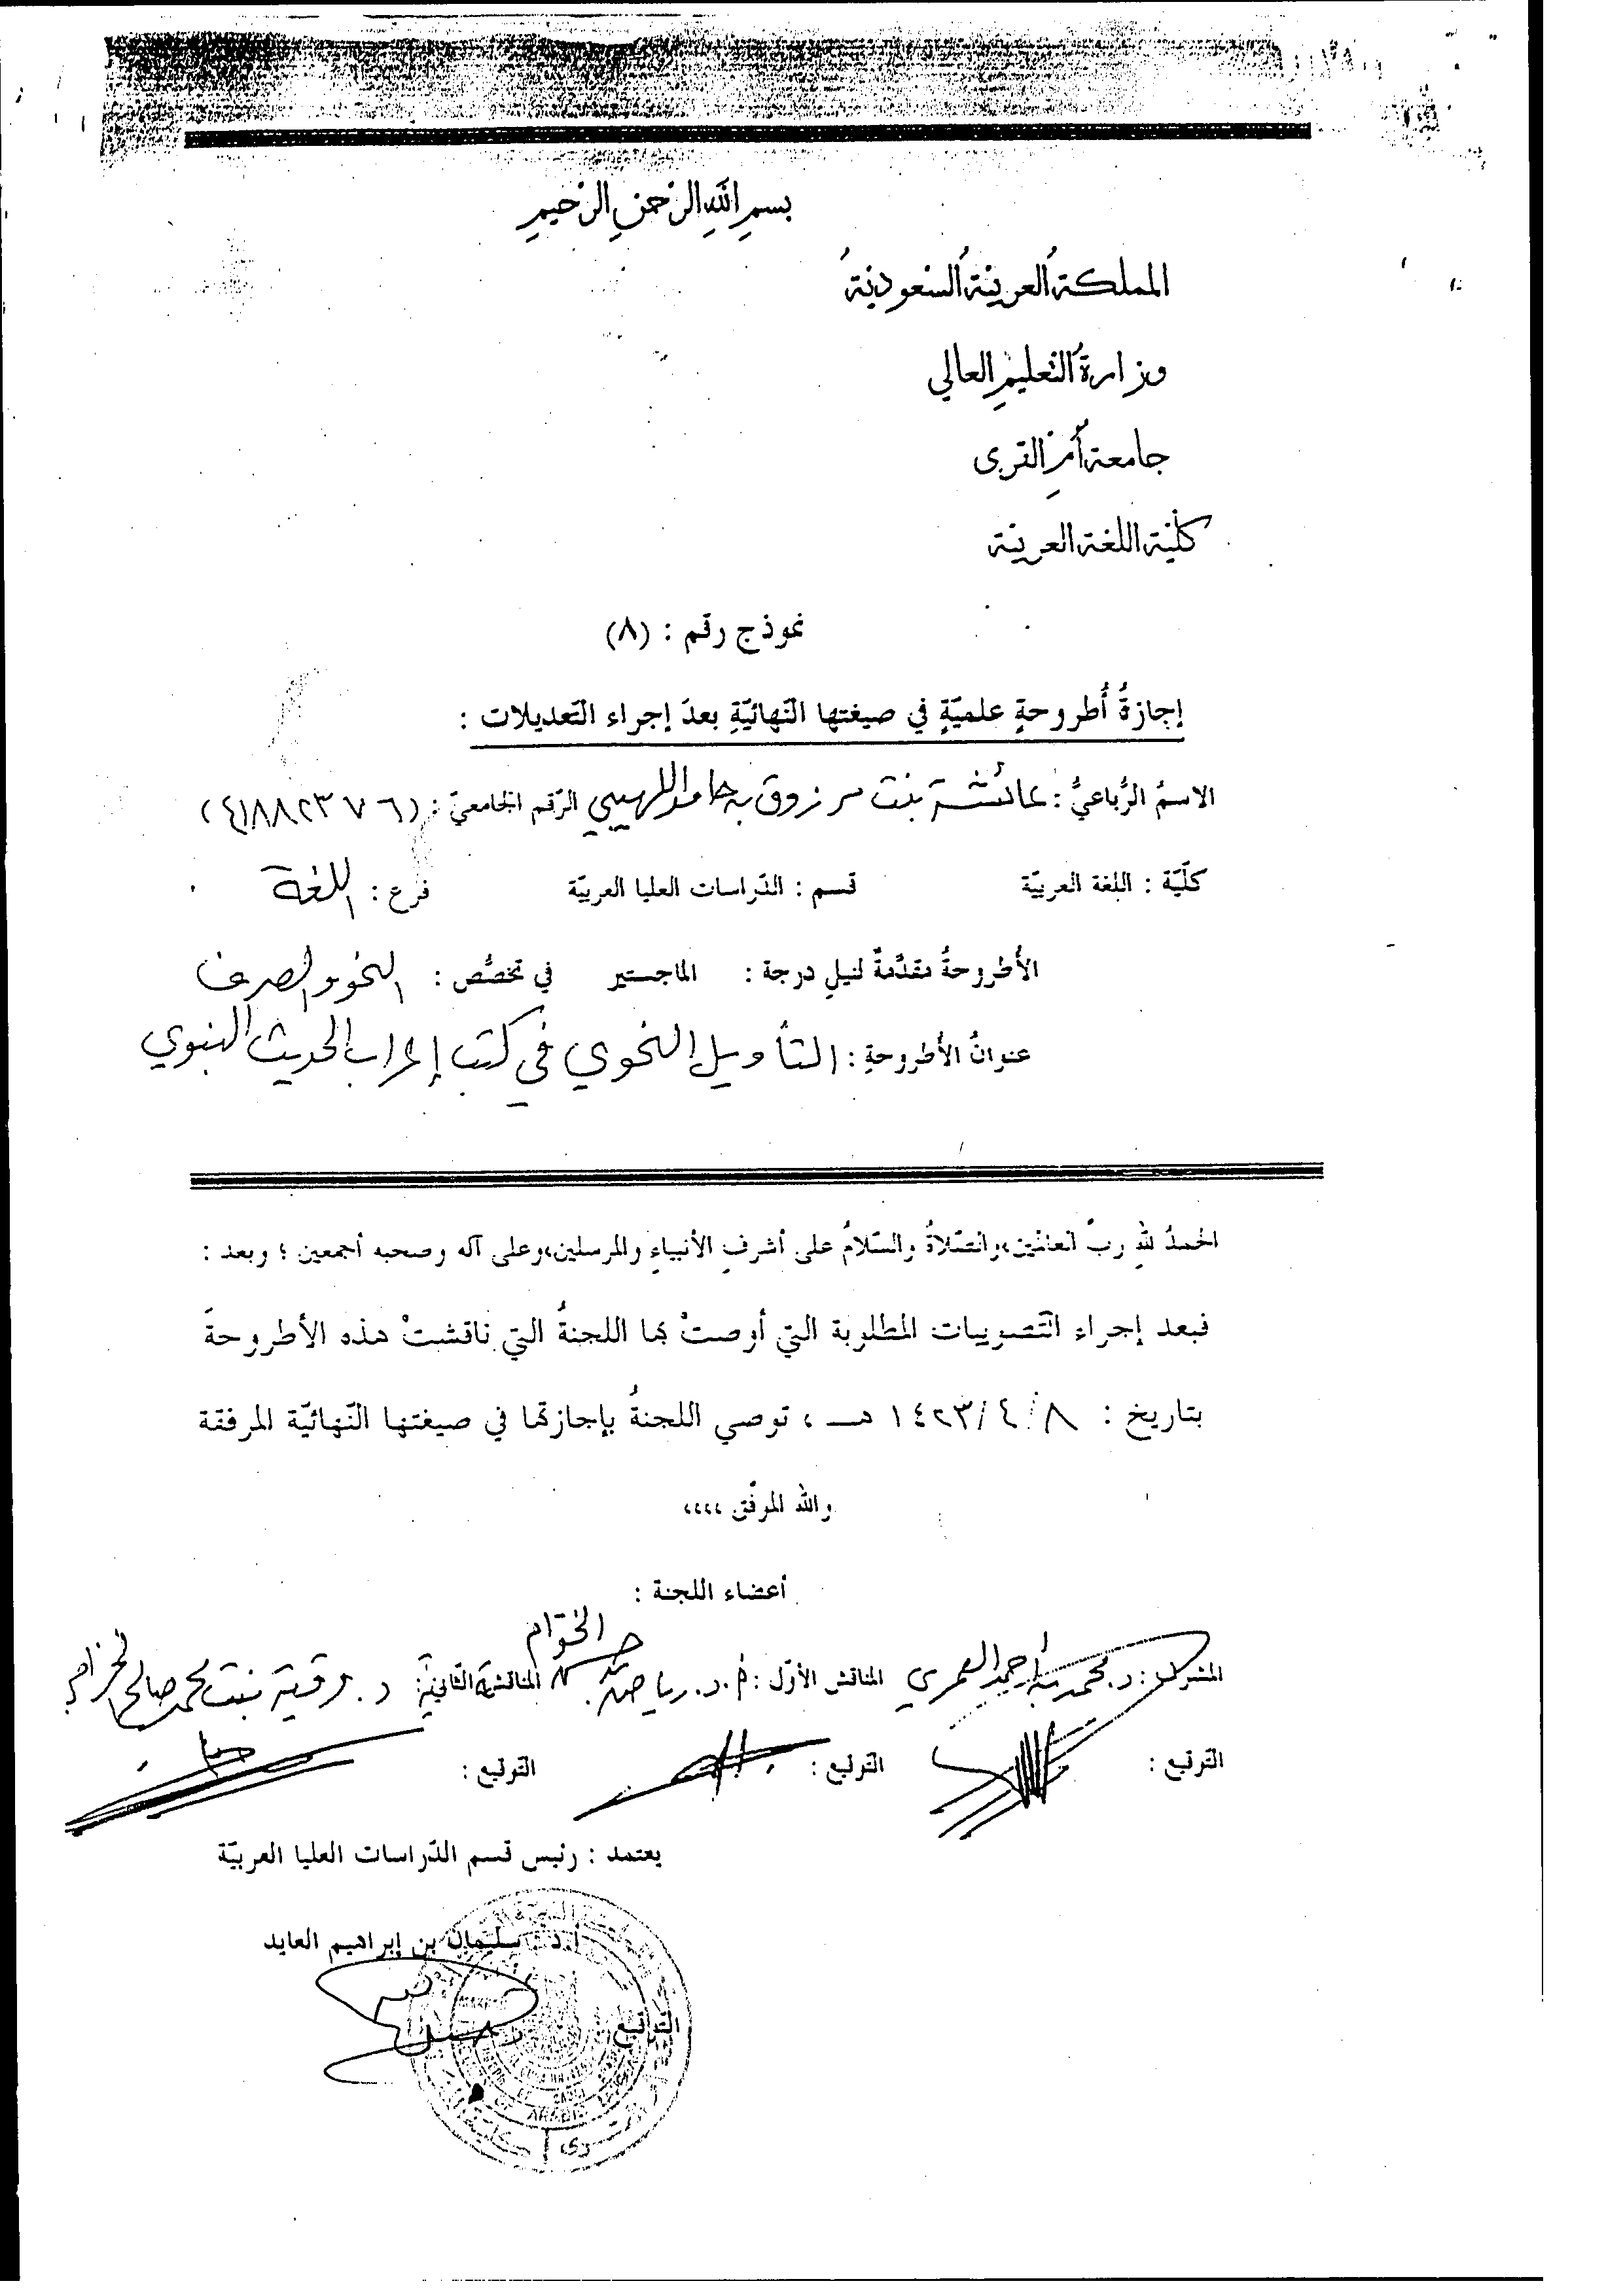 بسم الله الرحمن الرحيم
المملكة العربية السعودية
وزارة التعليم العالي
جامعة أم القرى
كلية اللغة العربية
نموذج رقم : (٨)
إجازةُ أُطروحةٍ علميّةٍ في صيغتها النّهائيّةِ بعدَ إجراء التّعديلات :
الاسمُ الرُّباعيُّ : عائشة بنت مرزوق بن حامد اللهيبي الرّقم الجامعيّ : (٤١٨٨٢٣٧٦)
كلّيّة : اللغة العربيّة قسم : الدّراسات العليا العربيّة فرع : اللغة
الأُطروحةُ مقدَّمةٌ لنيلِ درجة : الماجستير في تخصُّص : النحو والصرف
عنوانُ الأطروحةِ : التأويل النحوي في كتب إعراب الحديث النبوي
الحمدُ للهِ ربِّ العالمين،والصّلاةُ والسّلامُ على أشرفِ الأنبياءِ والمرسلين،وعلى آله وصحبه أجمعين ؛ وبعد :
فبعد إجراء التّصويبات المطلوبة التي أوصتْ بها اللجنةُ التي ناقشتْ هذه الأطروحةَ
بتاريخ : ٨/ ٤ /١٤٢٣ هـ ، توصي اللجنةُ بإجازتها في صيغتها النّهائيّة المرفقة
والله الموفّق ،،،،
أعضاء اللجنة :
المشرف : د. محمد بن أحمد العمري المناقش الأوّل : أ.د. رياض بن حسن الخوّام المناقشة الثّانية : د. رقية بنت محمد صالح الخزامي
التوقيع : التوقيع : التوقيع :
يعتمد : رئيس قسم الدّراسات العليا العربيّة
أ.د : سليمان بن إبراهيم العايد
التوقيع :